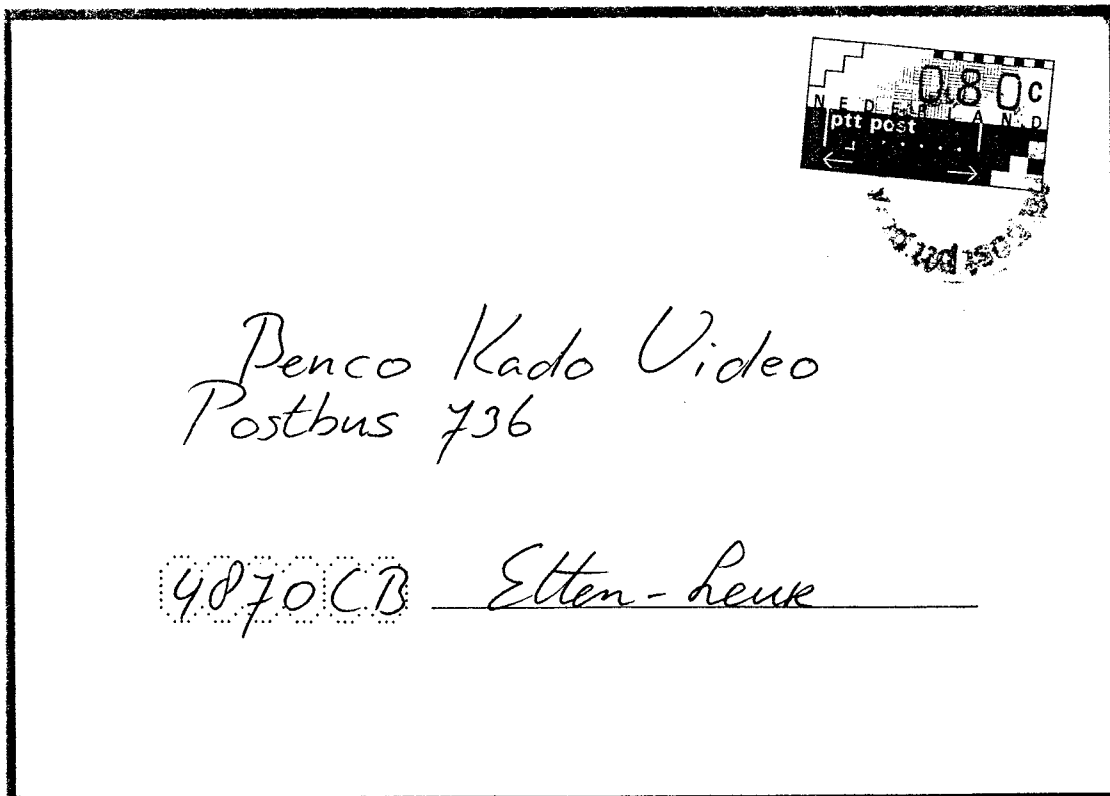 080 C
NEDERLAND
ptt post
Benco Kado Video
Postbus 736
4870 CB Etten-Leur